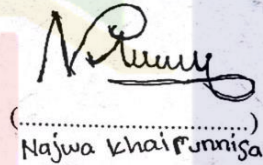 (..............................)
Najwa Khairunnisa